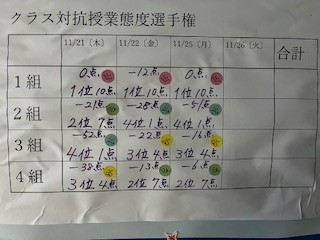 クラス対抗授業態度選手権
11/21（木） 11/22（金） 11/25（月） 11/26（火） 合計
0点 -12点 0点
1組
1位10点 1位10点 1位10点
-21点 -28点 -51点
2組
2位7点 4位1点 4位1点
-52点 -22点 -16点
3組
4位1点 3位4点 3位4点
-38点 -13点 -6点
4組
3位4点 2位7点 2位7点